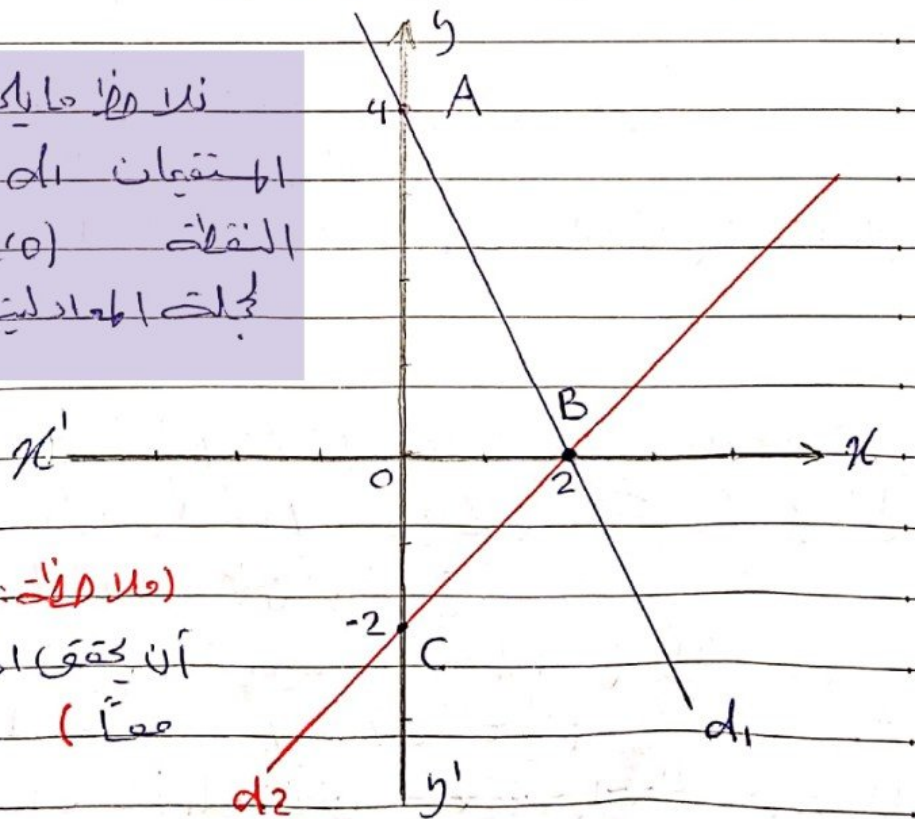 نلاحظ ما يلي
المستقيمان d1
النقطة (0،
لجملة المعادلتين
y
4 A
B
x' 0 2 x
(ملاحظة:
-2 C
أن يحقق ا
معاً)
d1
d2
y'